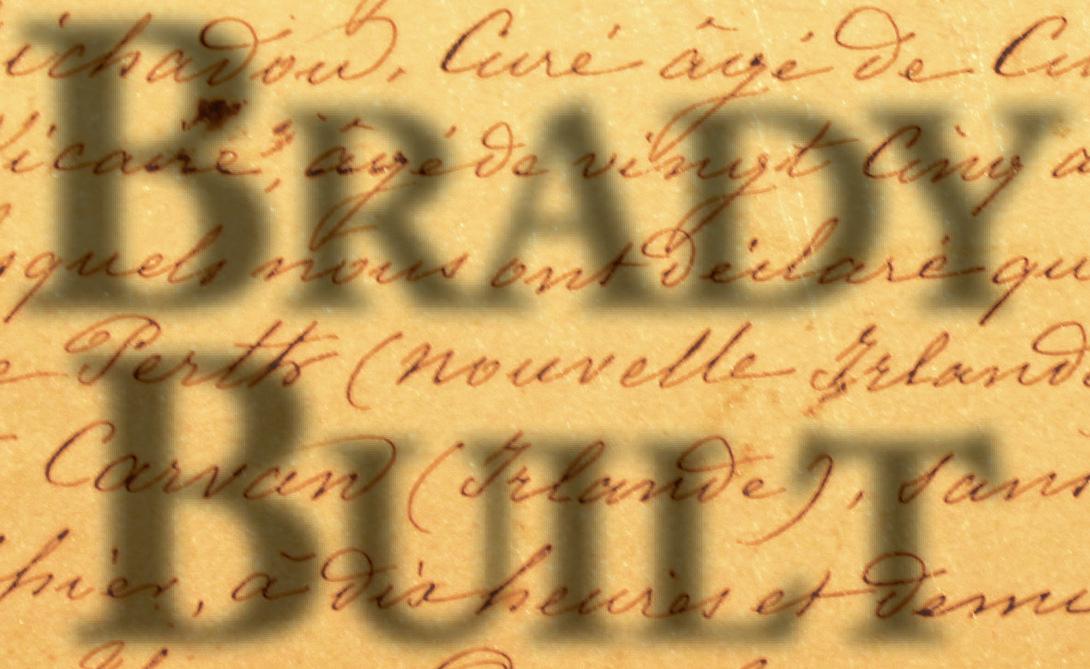 BRADY
BUILT
ichadou, Curé âgé de Cu
Vicaire, âgé de vingt Cinq a
squels nous ont déclaré qu
e Perth (nouvelle Irlande
Carvan (Irlande), sans
hier, à dix heures et demi